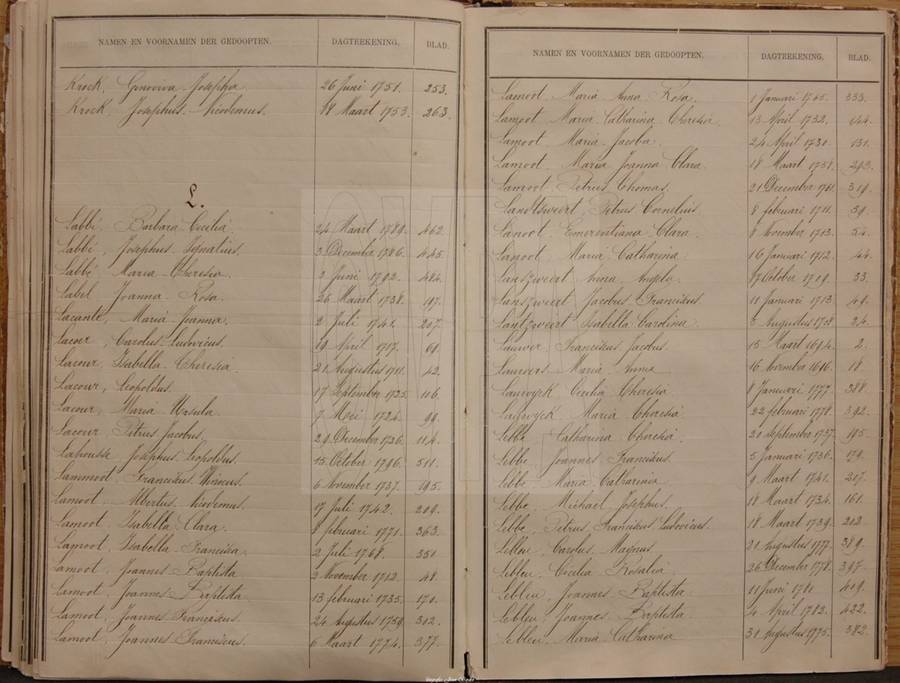 NAMEN EN VOORNAMEN DER GEDOOPTEN. DAGTEEKENING. BLAD.
Krock, Genoviva Josepha 26 Juni 1751. 253.
Krock, Josephus Nicodemus. 18 Maart 1753. 263.
L.
Labbé, Barbara Cecilia 24 Maart 1789. 462.
Labbé, Josephus Ignatius. 3 December 1786. 445.
Labbé, Maria Theresia. 2 Juni 1792. 484.
Label, Joanna Rosa. 26 Maart 1738. 197.
Lacante, Maria Joanna. 2 Juli 1741. 207.
Lacour, Carolus Ludovicus. 19 April 1717. 61.
Lacour, Isabella Theresia. 21 Augustus 1711. 42.
Lacour, Leopoldus. 17 September 1725. 116.
Lacour, Maria Ursula. 7 Mei 1724. 99.
Lacour, Petrus Jacobus. 29 December 1726. 114.
Lahousse, Josephus Leopoldus. 15 October 1796. 511.
Lammoot, Franciskus 6 November 1737. 195.
Lamoot, Albertus Nicodemus. 17 Juli 1742. 209.
Lamoot, Isabella Clara. 8 februari 1771. 363.
Lamoot, Isabella Franciska. 2 Juli 1768. 351.
Lamoot, Joannes Baptista 2 November 1712. 48.
Lamoot, Joannes Baptista 13 februari 1735. 170.
Lamoot, Joannes Franciscus. 24 Augustus 1759. 302.
Lamoot, Joannes Franciscus. 6 Maart 1774. 377.
NAMEN EN VOORNAMEN DER GEDOOPTEN. DAGTEEKENING. BLAD.
Lamoot, Maria Anna Rosa. 1 Januari 1765. 333.
Lamoot, Maria Catharina Theresia. 13 April 1732. 144.
Lamoot, Maria Jacoba. 24 April 1730. 131.
Lamoot, Maria Joanna Clara 18 Maart 1758. 293.
Lamoot, Petrus Thomas. 21 December 1761. 319.
Landtsweert, Petrus Cornelius. 8 februari 1711. 39.
Lanoot, Emerentiana Clara. 8 November 1713. 52.
Lanoot, Maria Catharina. 16 Januari 1712. 44.
Lanszweert, Anna Angela 17 October 1709. 33.
Lanszweert, Jacobus Franciskus. 11 Januari 1713. 49.
Lantzweert, Isabella Carolina. 3 Augustus 1708. 24.
Lauwer, Franciskus Jacobus. 15 Maart 1694. 2.
Lauwers, Maria Anna 16 November 1696. 18.
Lauwyck, Cecilia Theresia. 8 Januari 1777. 388.
Lauwyck, Maria Theresia. 22 februari 1778. 392.
Lebbe, Catharina Theresia. 21 September 1737. 195.
Lebbe, Joannes Franciskus. 5 Januari 1736. 179.
Lebbe, Maria Catharina. 9 Maart 1741. 207.
Lebbe, Michael Josephus. 18 Maart 1734. 161.
Lebbe, Petrus Franciskus Ludovicus. 18 Maart 1739. 202.
Lebleu, Carolus Magnus 21 Augustus 1777. 389.
Lebleu, Cecilia Rosalia. 26 December 1778. 397.
Lebleu, Joannes Baptista. 11 Juni 1780. 409.
Lebleu, Joannes Baptista. 4 April 1782. 422.
Lebleu, Maria Catharina 31 Augustus 1775. 382.